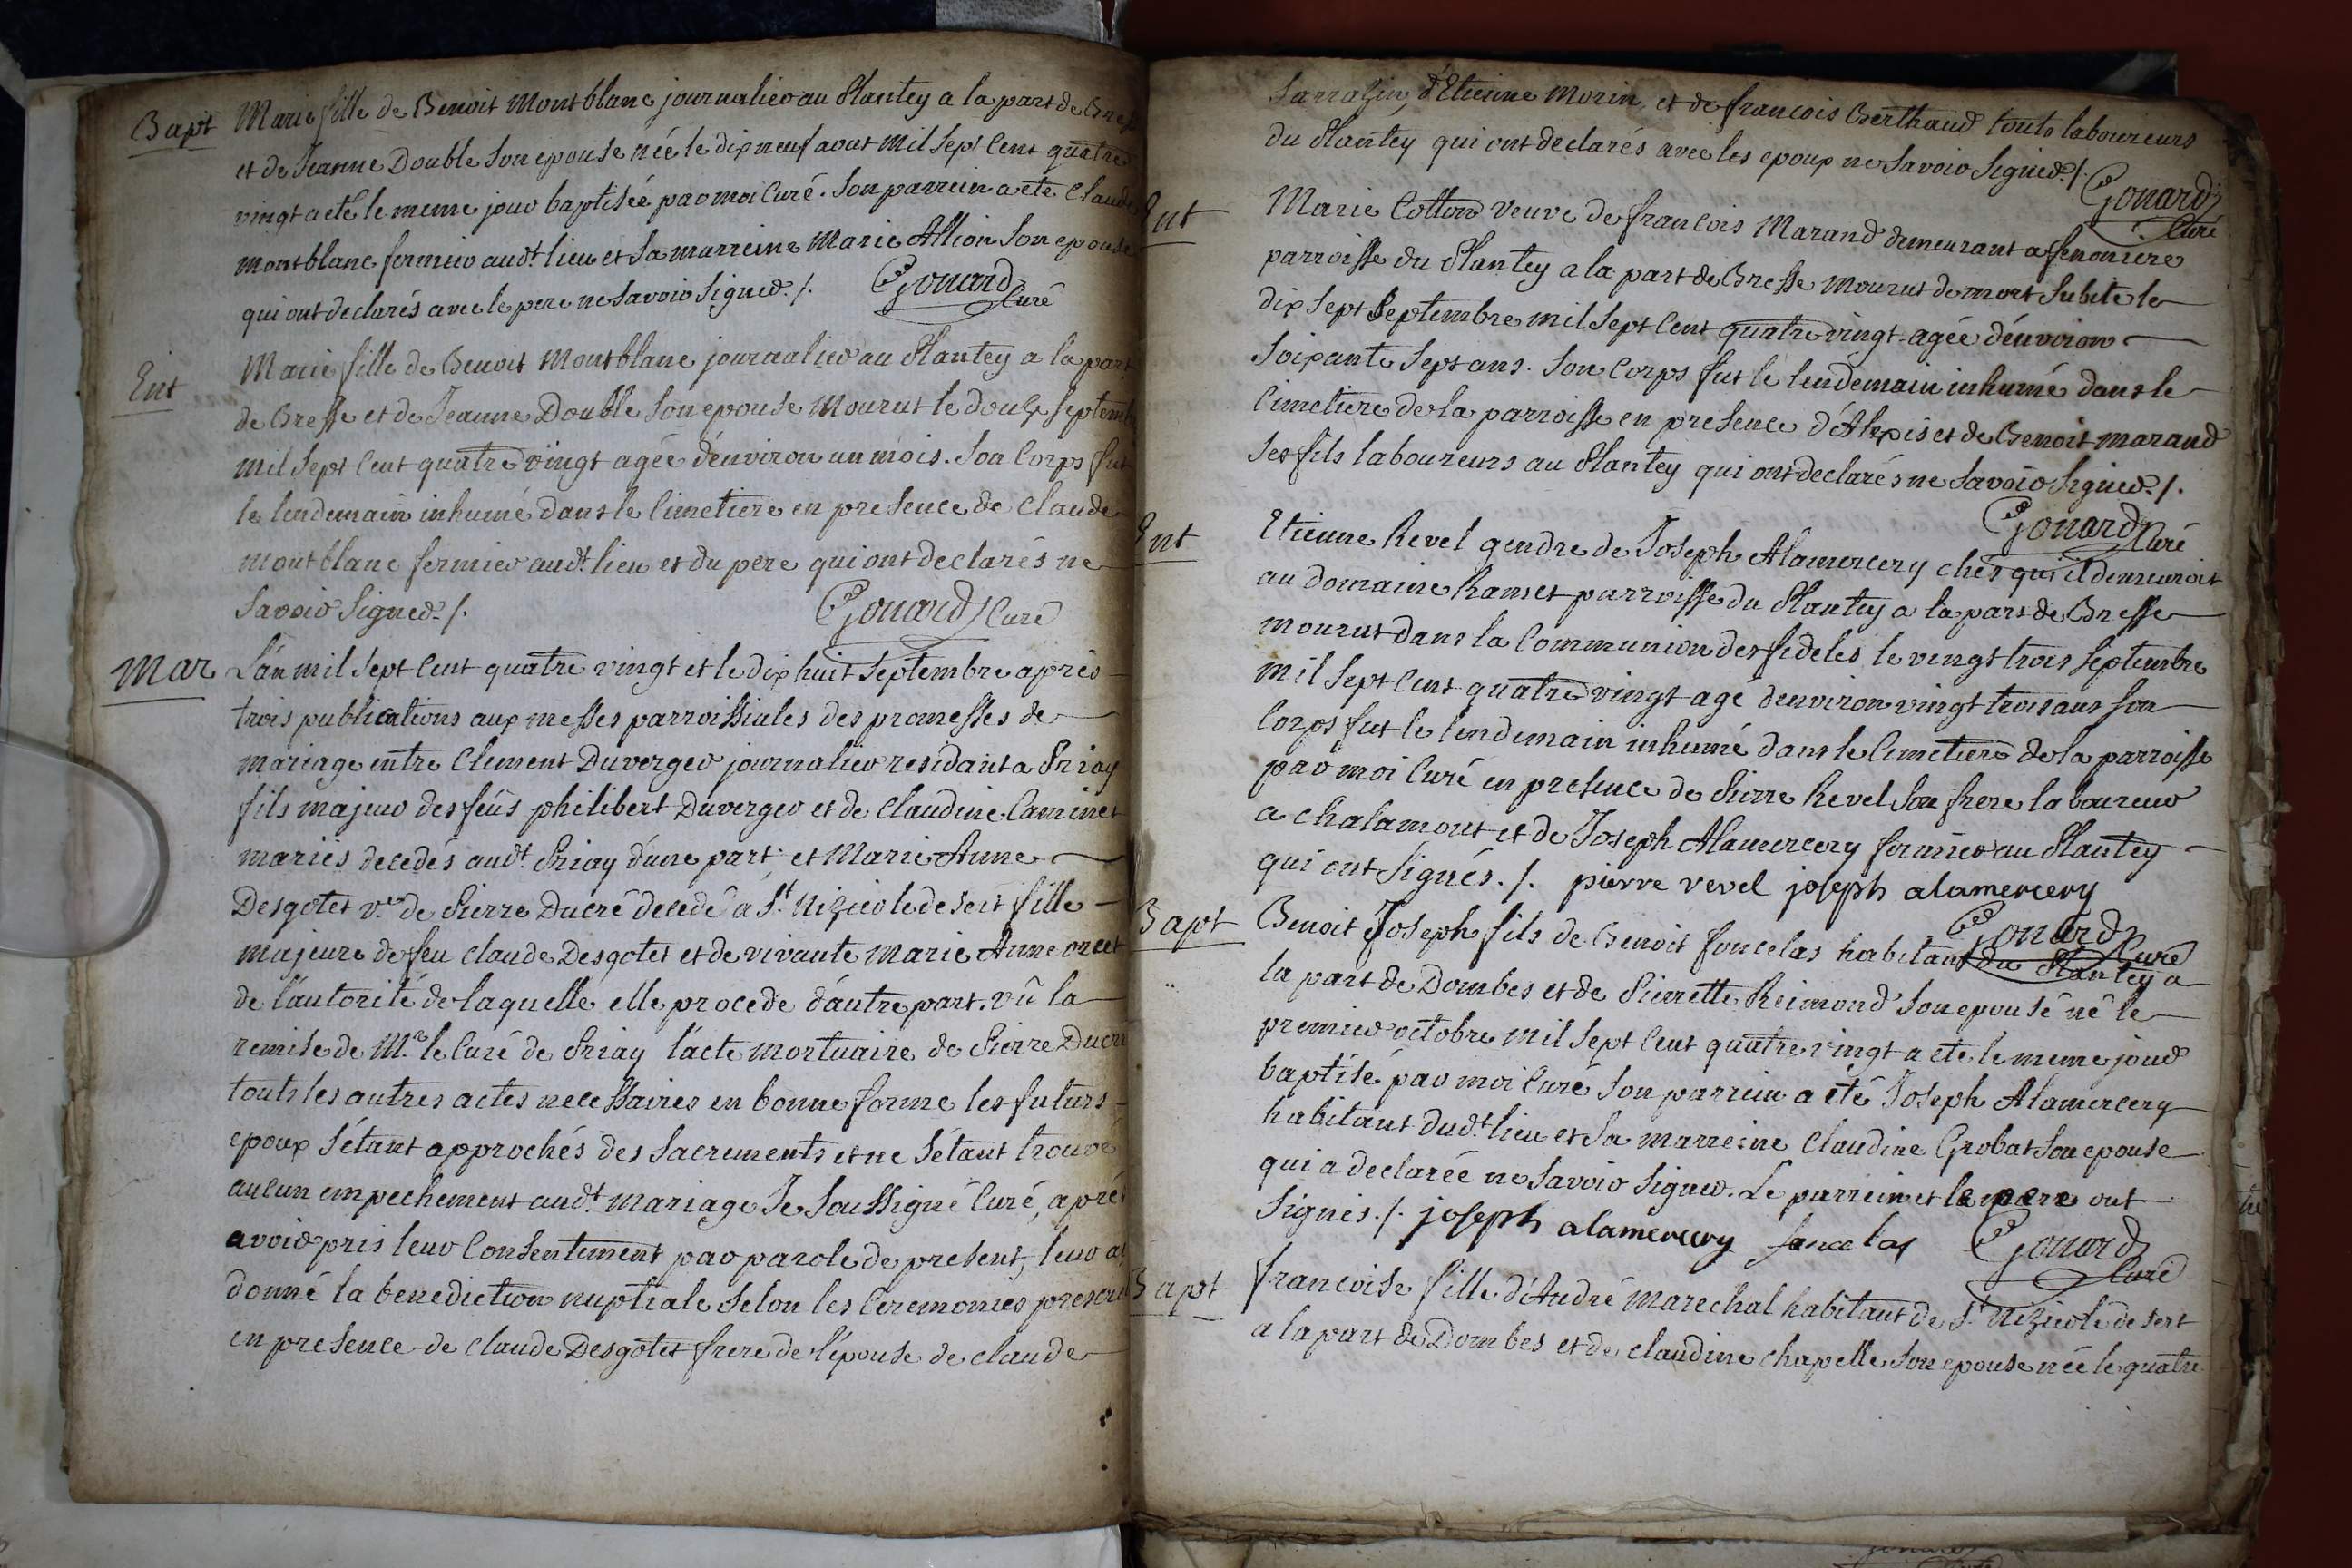 Bapt Marie fille de Benoit Montblanc journalier au Plantey a la part de Bresse
et de Jeanne Double son epouse née le dix neuf aout mil sept cent quatre
vingt a eté le meme jour baptisée par moi Curé. Son parrein a eté Claude
montblanc fermier audt. lieu et sa marreine Marie Allion son epouse
qui ont declarés avec le pere ne savoir signer ./. Gonard Curé
Ent Marie fille de Benoit Montblanc journalier au Plantey a la part
de Bresse et de Jeanne Double son epouse Mourut le douze septembre
mil sept cent quatre vingt agée d'environ un mois. Son Corps fut
le lendemain inhumé dans le Cimetiere en presence de Claude
montblanc fermier audt. lieu et du pere qui ont declarés ne
savoir signer ./. Gonard Curé
Mar L'an mil sept cent quatre vingt et le dix huit septembre après
trois publications aux messes parroissiales des promesses de
mariage entre Clement Duverger journalier residant a Priay
fils majeur des feüs philibert Duverger et de Claudine Caminet
mariés decedés audt. Priay d'une part; et Marie Anne
Desgotet ve. de Pierre Ducré decedé a St. Nizier le desert fille
majeure de feu Claude Desgotet et de vivante Marie Anne orcet
de l'autorité de laquelle elle procede d'autre part. vû la
remise de Mr. le Curé de Priay l'acte mortuaire de Pierre Ducré
touts les autres actes necessaires en bonne forme les futurs
epoux s'étant approchés des sacrements et ne s'étant trouvé
aucun empechement audt. mariage Je soussigné Curé, aprés
avoir pris leur Consentement par parole de present, leur ai
donné la benediction nuptiale selon les Ceremonies prescri
en presence de Claude Desgotet frere de l'épouse de claude
Sarrazin, d'Etienne Morin, et de francois Berthaud touts laboureurs
du Plantey qui ont declarés avec les epoux ne savoir signer ./. Gonard Curé
Ent Marie Cotton veuve de francois Marand demeurant a fenoniere
parroisse du Plantey a la part de Bresse mourut de mort subite le
dix sept septembre mil sept cent quatre vingt agée d'environ
soixante sept ans. Son Corps fut le lendemain inhumé dans le
Cimetiere de la parroisse en presence d'Alexis et de Benoit marand
ses fils laboureurs au Plantey qui ont declarés ne savoir signer ./.
Gonard Curé
Ent Etienne Revel gendre de Joseph Alamercery chés qui il demeuroit
au domaine Ranset parroisse du Plantey a la part de Bresse
mourut dans la Communion des fideles le vingt trois septembre
mil sept cent quatre vingt agé denviron vingt trois ans son
Corps fut le lendemain inhumé dans le Cimetiere de la parroisse
par moi Curé en presence de Pierre Revel son frere laboureur
a Chalamont et de Joseph Alamercery fermier au Plantey
qui ont signés ./. pierre revel joseph alamercery
Gonard Curé
Bapt Benoit Joseph fils de Benoit foncelas habitant du Plantey a
la part de Dombes et de Pierrette Reimond son epouse né le
premier octobre mil sept cent quatre vingt a eté le meme jour
baptisé par moi Curé son parrein a eté Joseph Alamercery
habitant dudt. lieu et sa marreine Claudine Grobat son epouse
qui a declarée ne savoir signer. Le parrein et le pere ont
signés ./. joseph alamercery foncelas Gonard Curé
Bapt francoise fille d'André Marechal habitant de St. Nizier le desert
a la part de Dombes et de claudine chapelle son epouse née le quatre